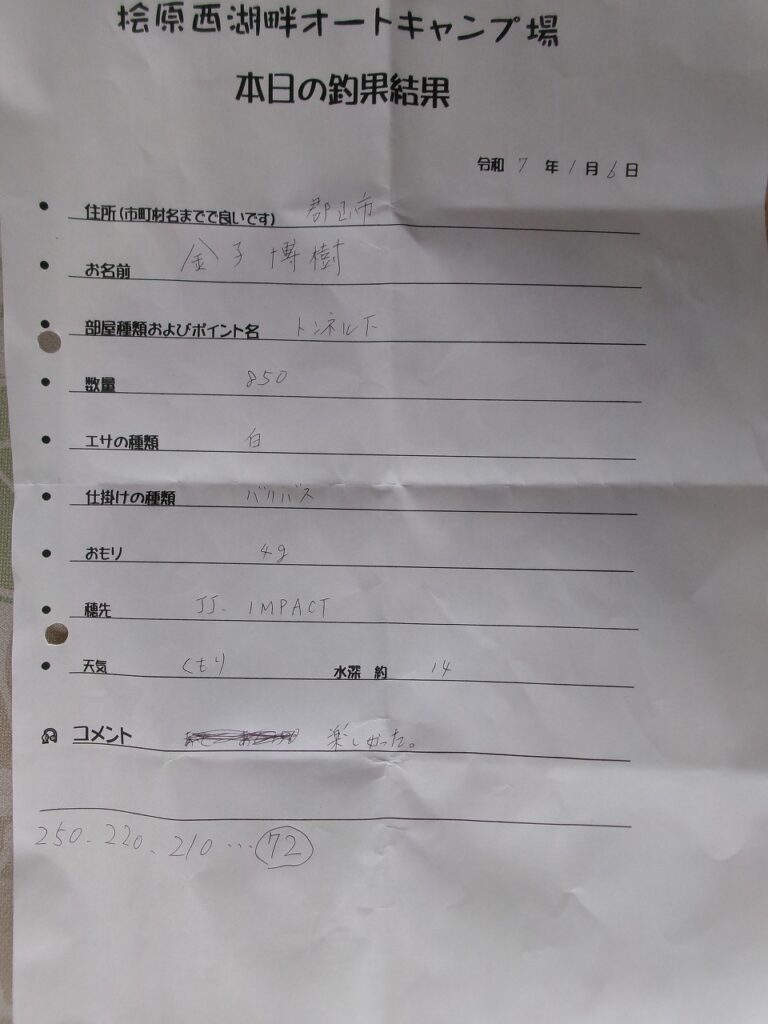 桧原西湖畔オートキャンプ場
本日の釣果結果
令和 7 年 1 月 6 日
住所(市町材名までで良いです) 郡山市
お名前 金子 博樹
部屋種類およびポイント名 トンネル下
数量 850
エサの種類 白
仕掛けの種類 バリバス
おもり 4g
穂先 JJ. IMPACT
天気 くもり 水深 約 14
コメント 楽しかった。
250、220、210…72